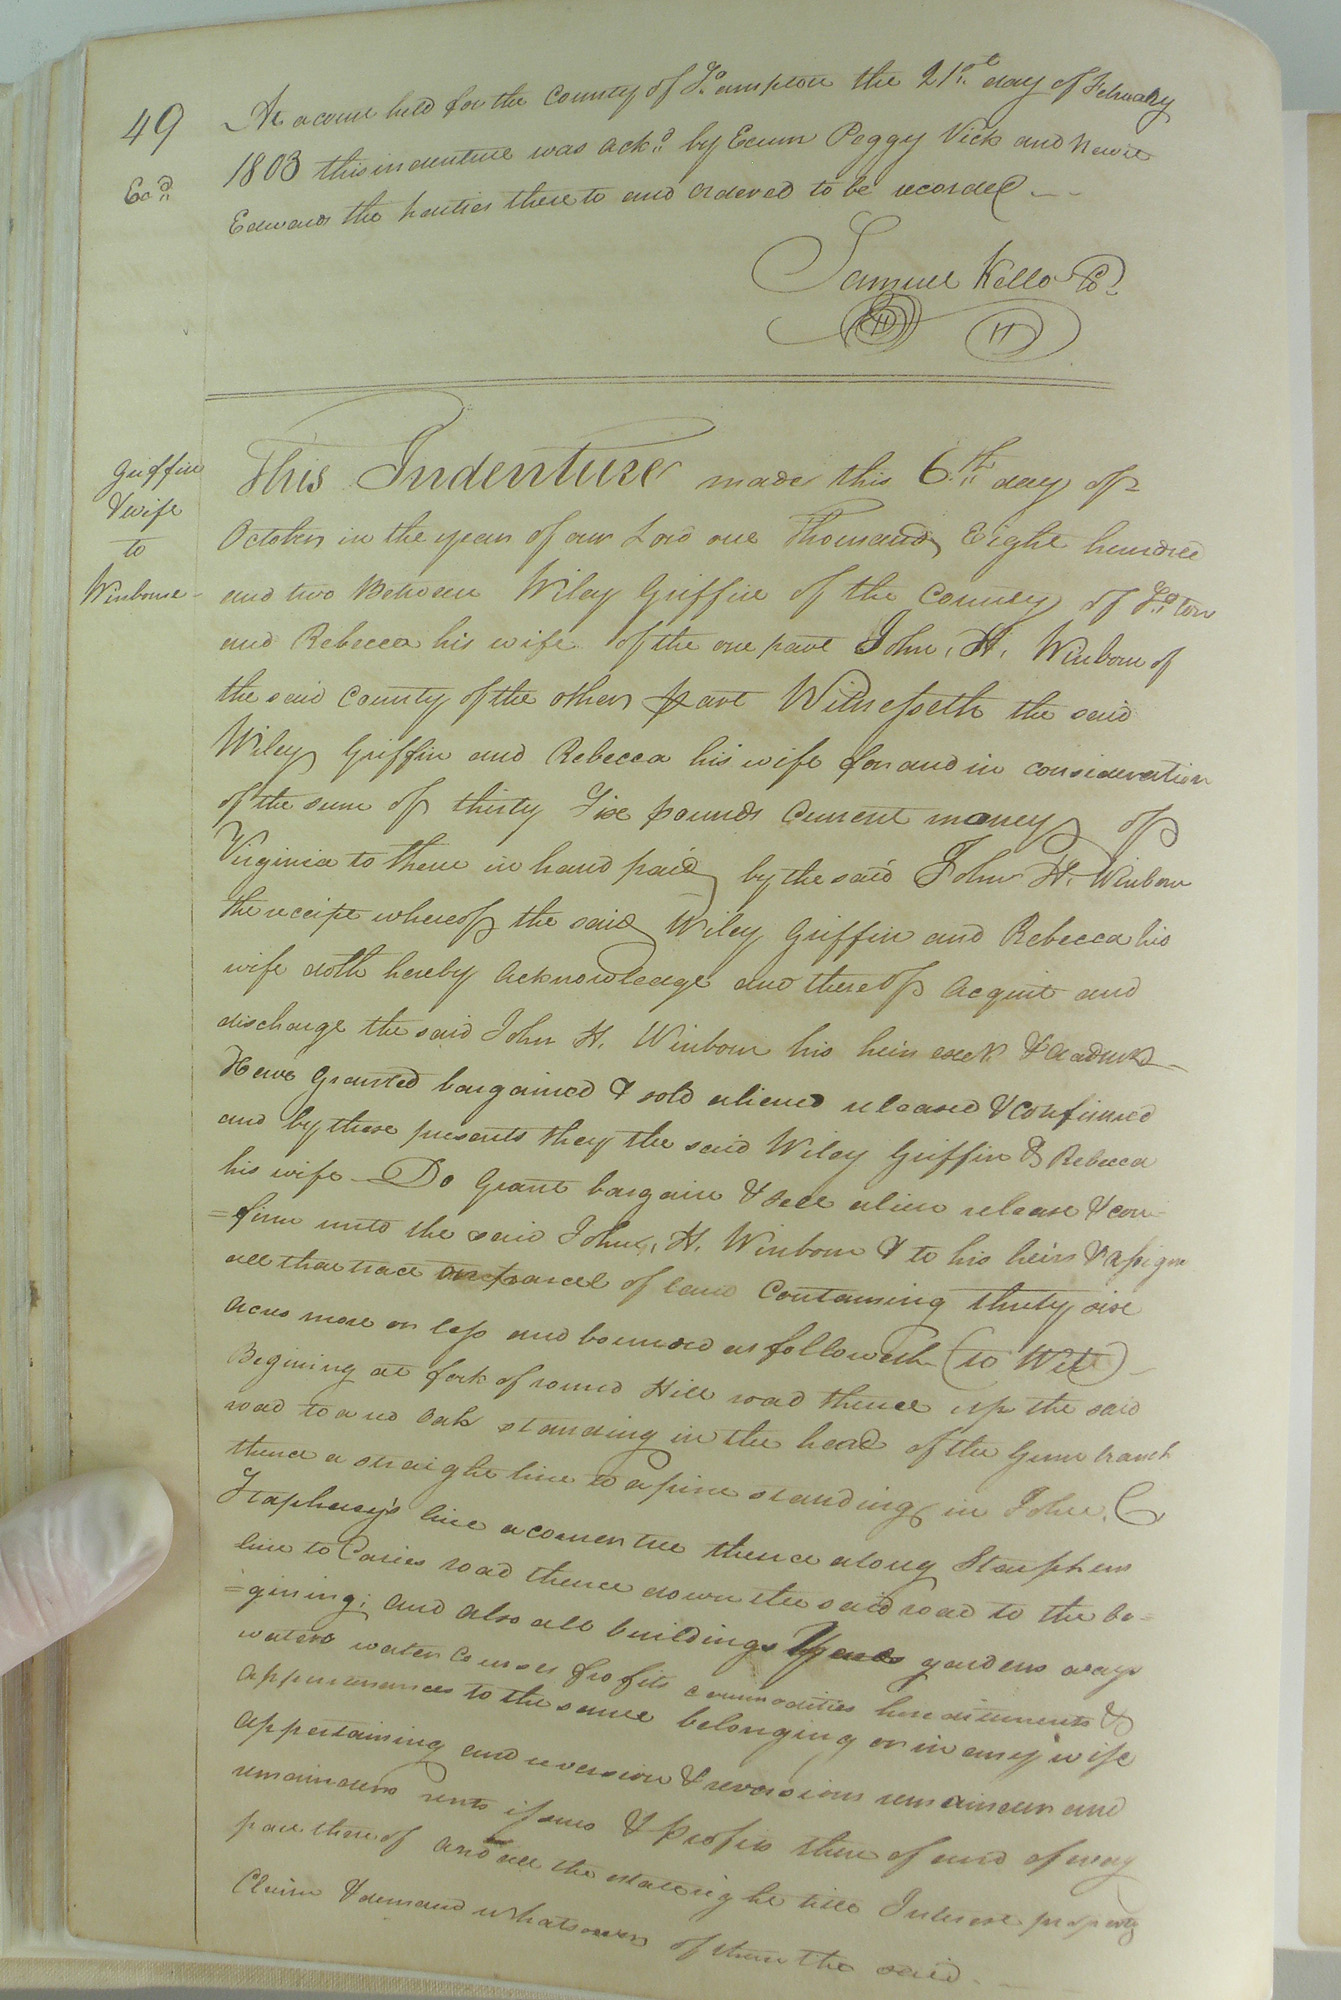 49
Exd.
At a court held for the County of So.ampton the 21st day of February
1803 this indenture was ackd. by Peggy Vick and Newit
Edwards the parties thereto and ordered to be recorded
Samuel Kello Co.
Griffin
& wife
to
Winborne
This Indenture made this 6th day of
October in the year of our Lord one Thousand Eight hundred
and two Between Wiley Griffin of the County of So.ton
and Rebecca his wife of the one part John, H, Winborn of
the said County of the other part Witnesseth the said
Wiley Griffin and Rebecca his wife for and in consideration
of the sum of thirty Six pounds Current money of
Virginia to them in hand paid by the said John H. Winborn
the receipt whereof the said Wiley Griffin and Rebecca his
wife doth hereby Acknowledge and thereof Acquit and
discharge the said John H. Winborn his heirs &
Have Granted bargained & sold aliened released & confirmed
and by these presents they the said Wiley Griffin & Rebecca
his wife Do Grant bargain & sell alien release & con-
=firm unto the said John, H. Winborn & to his heirs & assigns
all that tract or parcel of land Containing thirty six
acres more or less and bounded as followeth (to Wit)
Begining at fork of round Hill road thence up the said
road to a red Oak standing in the head of the Gum branch
thence a straight line to a pine standing in John,
line a corner tree thence along Staephens
line to Caries road thence down the said road to the be=
=gining; and also all buildings gardens ways
waters water Courses profits commodities hereditaments &
Appurtenances to the same belonging or in any wise
appertaining and reversion & reversions remainder and
remainders rents issues & profits there of and of every
part thereof and all the estate right title Interest property
Claim & demand whatsoever of them the said